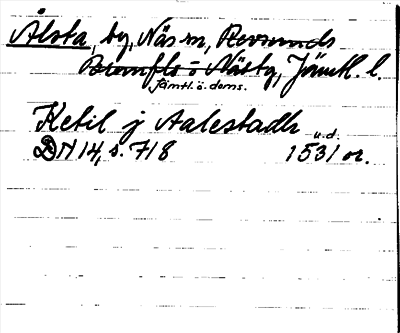 Ålsta, by, Näs sn, Revsunds
Brunflo o Näs tg, Jämtl. l.
Jämtl. ö. doms.
Ketil j Aalestadh u.d.
DN 14, s. 718 1531 or.